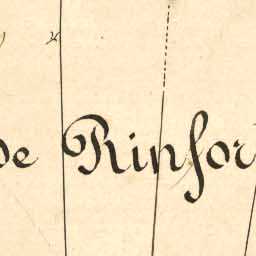 de Rinfor